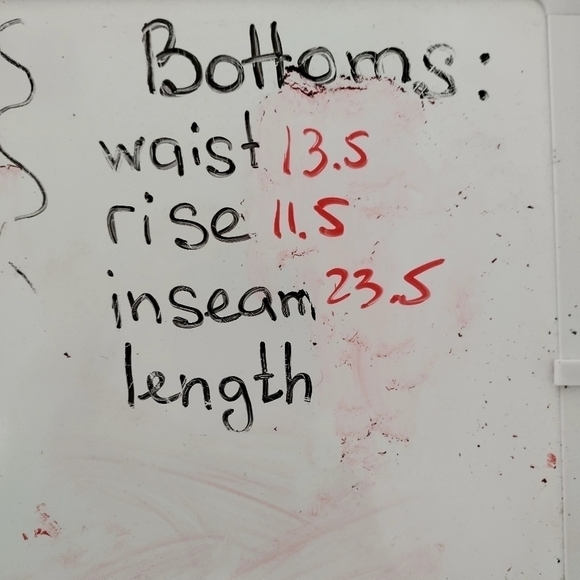 Bottoms:
waist 13.5
rise 11.5
inseam 23.5
length